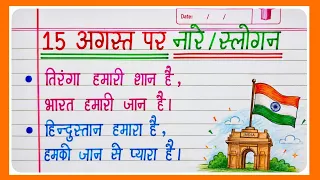 Date: / /
15 अगस्त पर नारे/स्लोगन
• तिरंगा हमारी शान है,
भारत हमारी जान है।
• हिन्दुस्तान हमारा है,
हमको जान से प्यारा है।